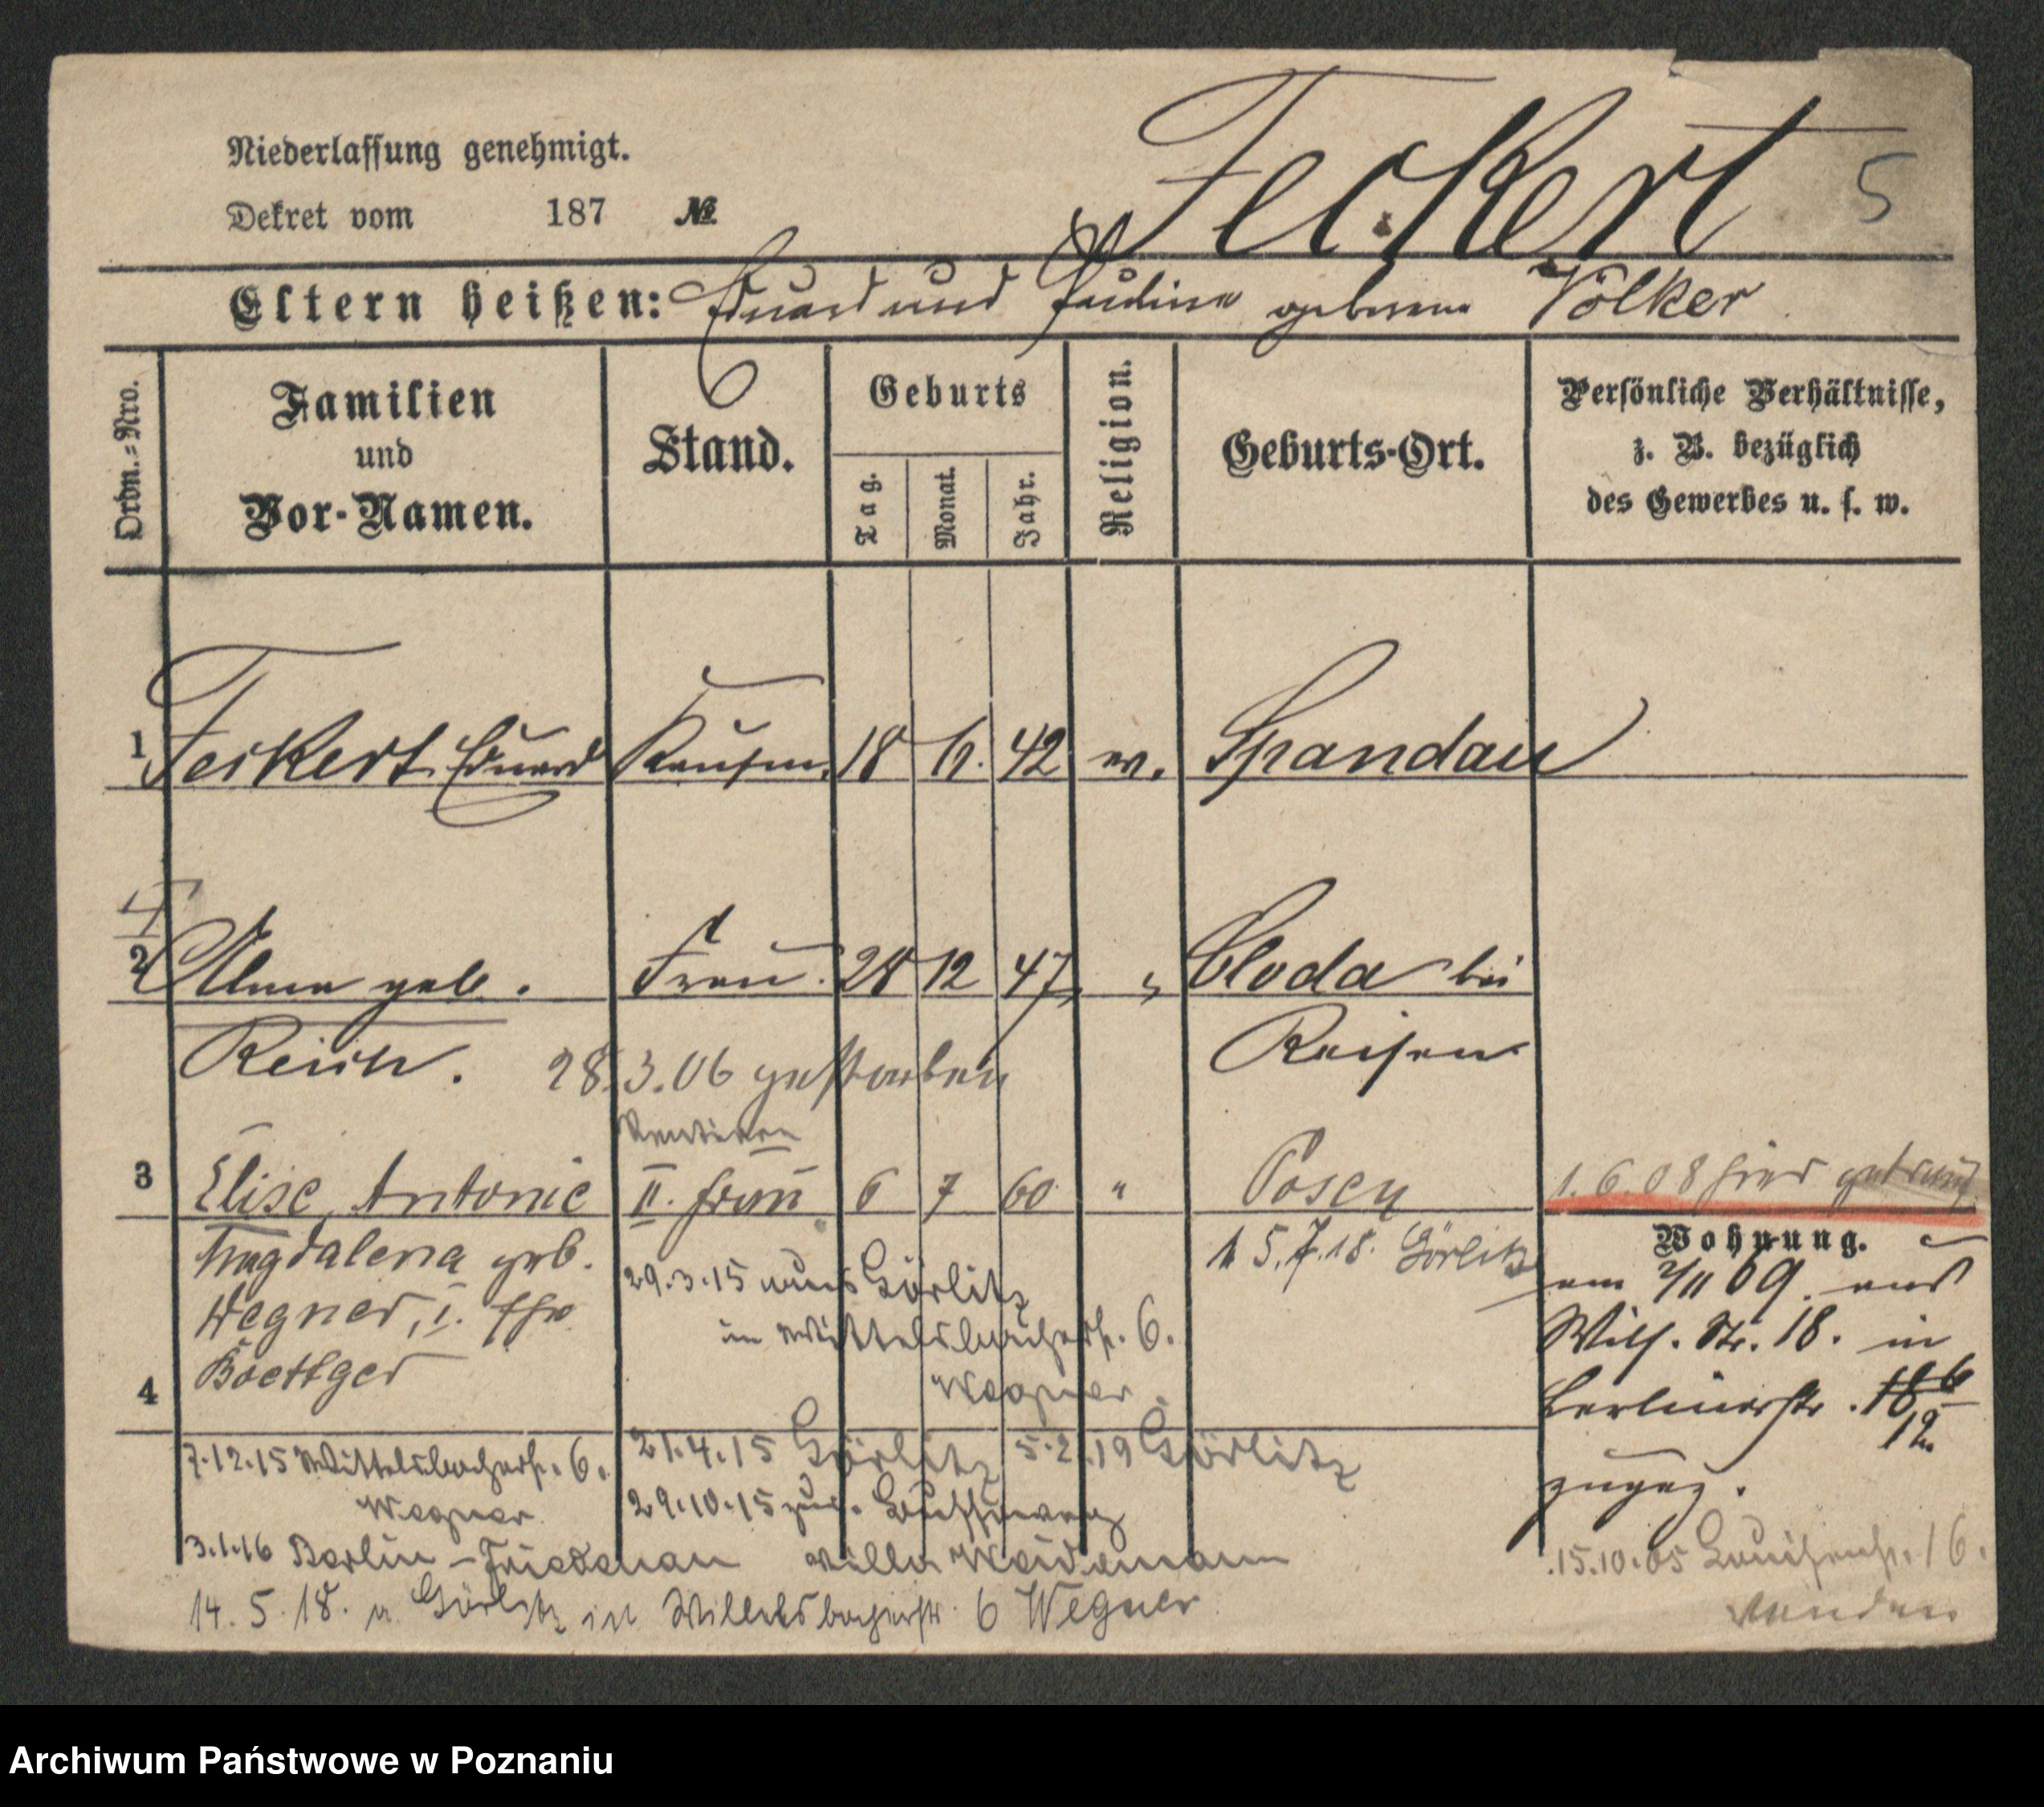 Niederlassung genehmigt.
Feckert 5
Dekret vom 187 №
Eltern heißen: Eduard und Pauline geborene Völker
Ordn.=Nro.
Familien
und
Vor-Namen.
Stand.
Geburts
Tag.
Monat.
Jahr.
Religion.
Geburts-Ort.
Persönliche Verhältnisse,
z. B. bezüglich
des Gewerbes u. s. w.
1 Feckert Eduard Kaufm. 18 6. 42 ev. Spandau
2 Alma geb. Frau. 28 12 47 " Cloda bei
Reich. Reisen
28.3.06 gestorben
Rentiere
3 Elise, Antonie II. Frau 6 7 60 " Posen 1.6.08 hier getraut
Magdalena geb.
Wegner, I. Ehe
Boettger
29.3.15 aus Görlitz
in Wittelsbacherstr. 6.
Wegner
15.7.18. Görlitz
Wohnung.
am 2/11 09. aus
Wilh. Str. 18. in
Berlinerstr. 12
zugez.
4
7.12.15 Wittelsbacherstr. 6.
Wegner
21.4.15 Görlitz 5.2.19 Görlitz
29.10.15 zur.
3.1.16 Berlin-Friedenau Villa Weidemann
14.5.18. v. Görlitz in Wittelsbacherstr. 6 Wegner
15.10.05 Louisenstr. 16.
Archiwum Państwowe w Poznaniu